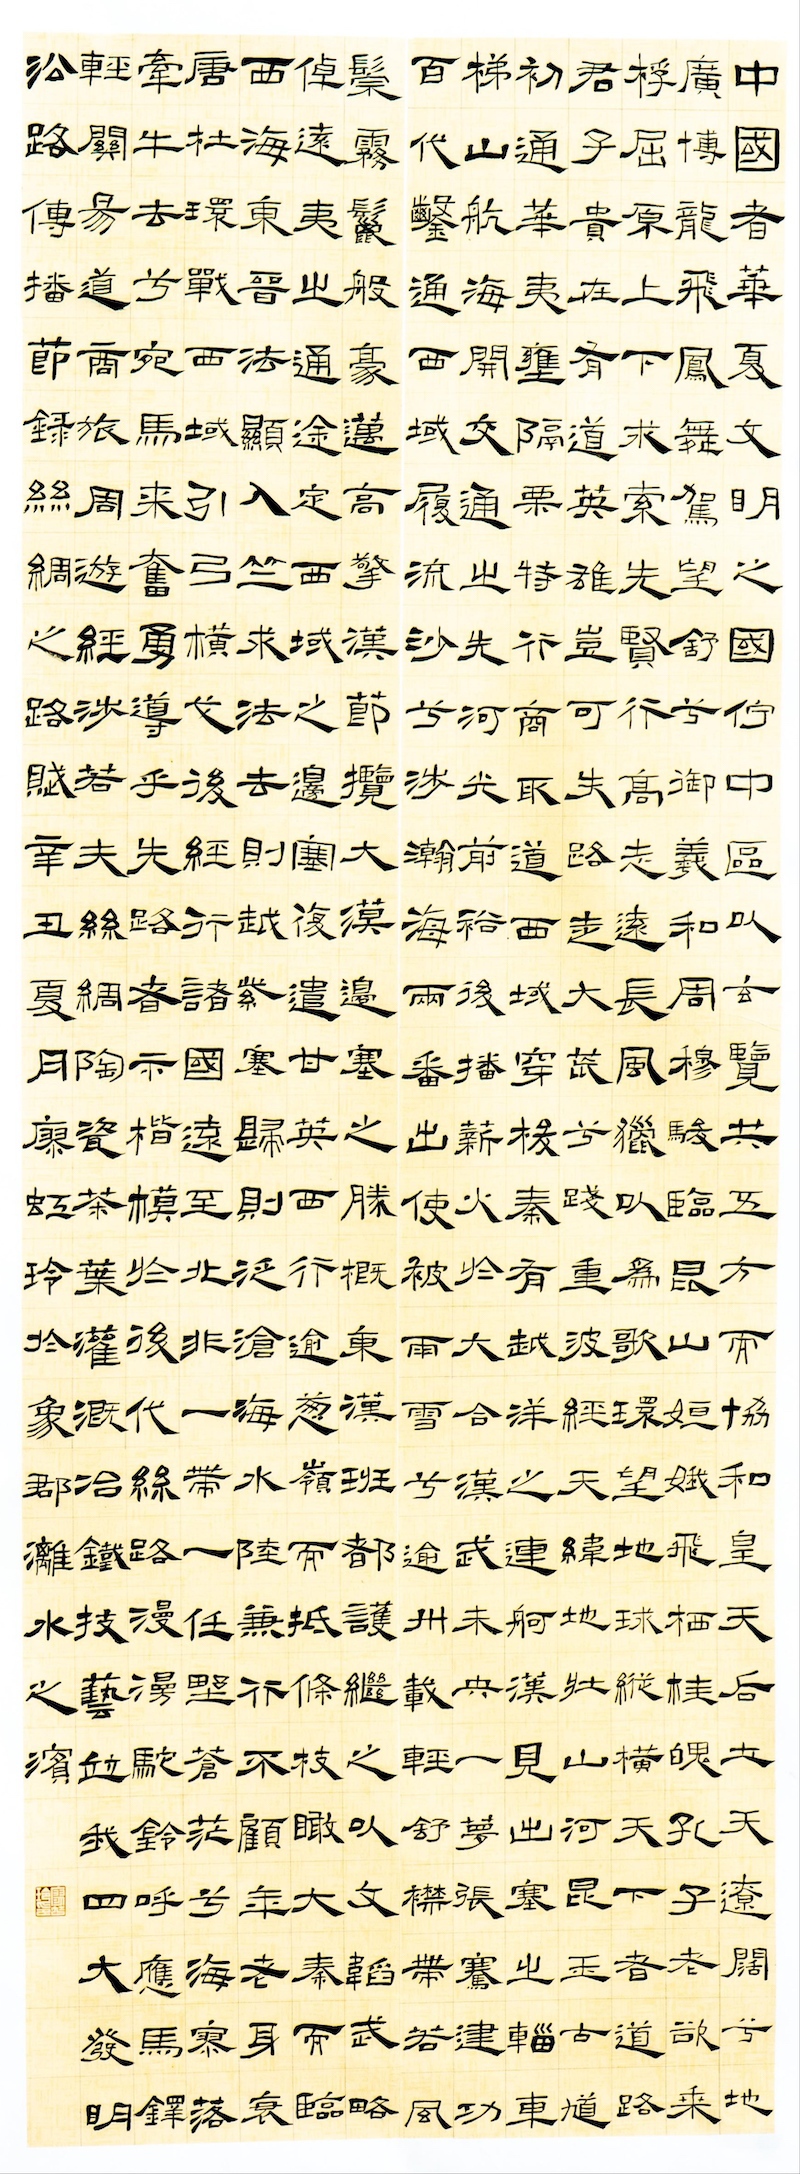 中國者華夏文明之國佇中區以玄覽共五方而協和皇天后土天遼闊兮地
廣博龍飛鳳舞駕望舒兮御羲和周穆駿臨昆山姮娥飛栖桂魄孔子老欲乘
桴屈原上下求索先賢行高志遠長風獵以為歌環望地球縱橫天下者道路
君子貴在有道英雄豈可失路走大荒兮踐重波經天緯地壯山河昆玉古道
初通華夷壅隔粟特行商取道西域穿棧秦有越洋之連舸漢見出塞之輜車
梯山航海開交通之先河光前裕後播薪火於大合漢武未央一夢張騫建功
百代鑿通西域履流沙兮涉瀚海兩番出使被雨雪兮逾卅載輕舒襟帶若風
鬃霧鬣般豪邁高擎漢節攬大漠邊塞之勝概東漢班都護繼之以文韜武略
倬遠夷之通途定西域之邊塞復遣甘英西行逾蔥嶺而抵條枝瞰大秦而臨
西海東晉法顯入竺求法去則越紫塞歸則泛滄海水陸兼行不顧年老身衰
唐杜環戰西域引弓橫戈後經行諸國遠至北非一帶一任野蒼茫兮海寥落
牽牛去兮宛馬来奮勇導乎先路者示楷模於後代絲路漫漫駝鈴呼應馬鐸
輕關易道商旅周遊經涉若夫絲綢陶瓷茶葉灌溉冶鐵技藝並我四大發明
沿路傳播節錄絲綢之路賦辛丑夏月康虹玲於象郡灕水之濱